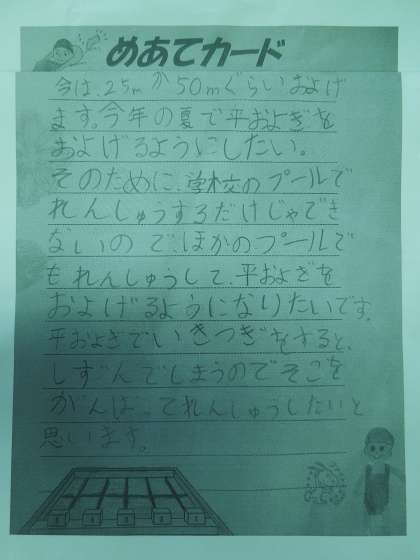 めあてカード
今は、25mか50mぐらいおよげ
ます。今年の夏で平およぎを
およげるようにしたい。
そのために、学校のプールで
れんしゅうするだけじゃでき
ないので、ほかのプールで
もれんしゅうして、平およぎを
およげるようになりたいです。
平およぎでいきつぎをすると、
しずんでしまうのでそこを
がんばってれんしゅうしたいと
思います。